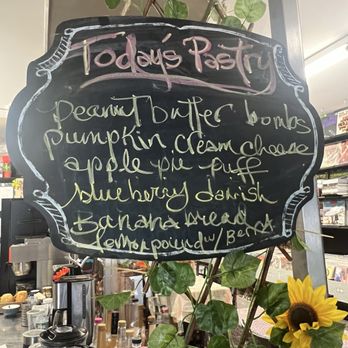 Today's Pastry
peanut butter bombs
pumpkin cream cheese
apple pie puff
blueberry danish
Banana bread
lemon pound w/ Berry